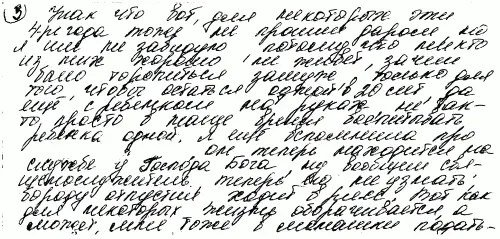 ③ Знак что вот, для некоторых эти
4-ри года тоже не прошли даром, но
я им не завидую потому, что никто
из них хорошо не живёт, зачем
было торопиться замуж, только для
того, чтобы остаться одной в 20 лет да
ещё с ребёнком на руках не так-
то, просто в наше время воспитывать
ребёнка одной. Я ещё вспомнила про
он теперь находится на
службе у Господа Бога, ну вообщем свя-
щеннослужитель, теперь его не узнать
бороду отпустил ходит в рясе. Вот как
для некоторых жизнь оборачивается, а
может, мне тоже в монашки подать-